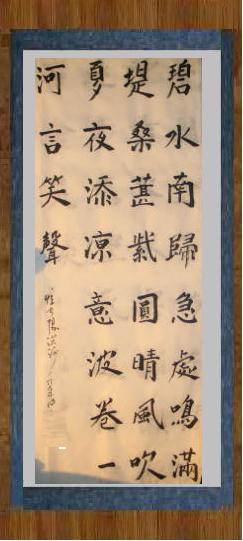 碧水南歸急處鳴滿
堤桑葚紫圓晴風吹
夏夜添涼意波卷一
河言笑聲